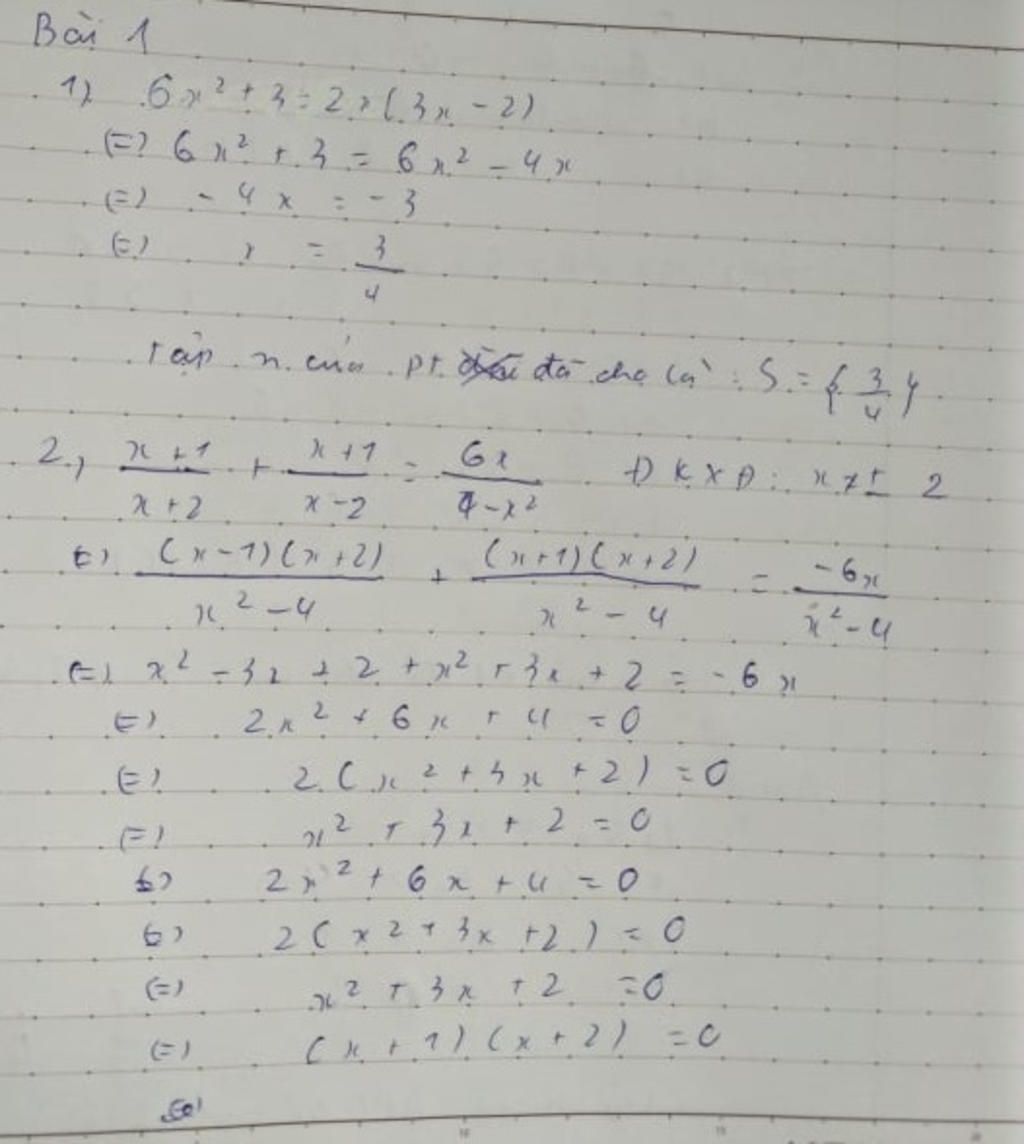 Bài 1
1) 6x² + 3 = 2x(3x - 2)
(=) 6x² + 3 = 6x² - 4x
(=) - 4x = - 3
(=) x = 3/4
Tập n. của pt đã cho là : S = { 3/4 }
2, (x+1)/(x+2) + (x+1)/(x-2) = 6x/(4-x²) ĐKXĐ: x ≠ ± 2
(=) (x-1)(x+2)/(x²-4) + (x+1)(x+2)/(x²-4) = -6x/(x²-4)
(=) x² - 3x + 2 + x² + 3x + 2 = - 6x
(=) 2x² + 6x + 4 = 0
(=) 2(x² + 3x + 2) = 0
(=) x² + 3x + 2 = 0
(=) 2x² + 6x + 4 = 0
(=) 2(x² + 3x + 2) = 0
(=) x² + 3x + 2 = 0
(=) (x + 1)(x + 2) = 0
(=)